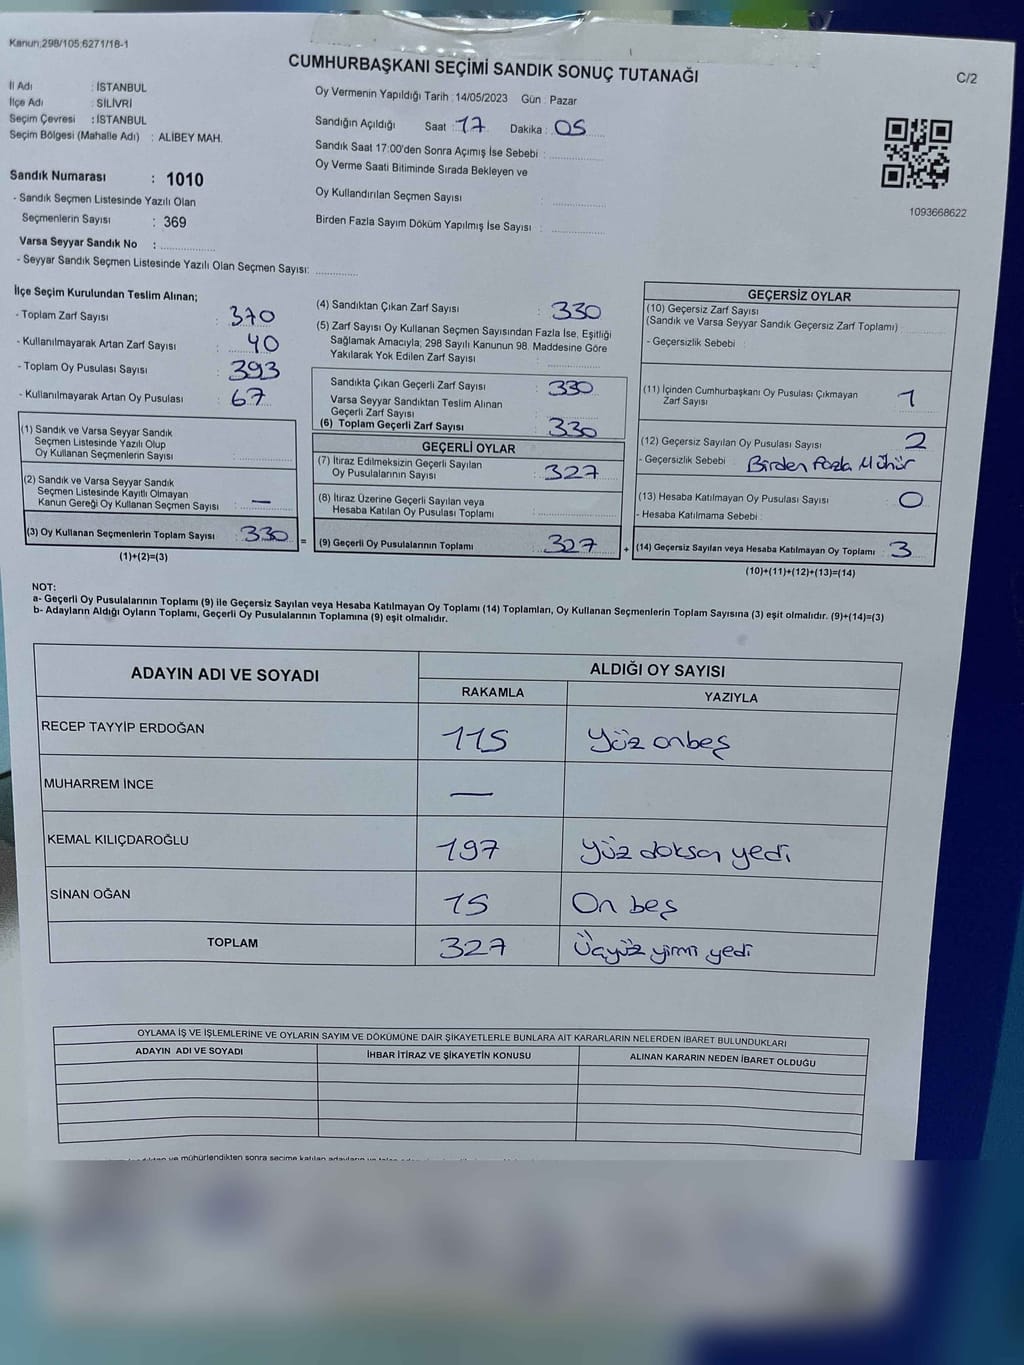 Kanun:298/105;6271/18-1
CUMHURBAŞKANI SEÇİMİ SANDIK SONUÇ TUTANAĞI
C/2
İl Adı : İSTANBUL
İlçe Adı : SİLİVRİ
Seçim Çevresi : İSTANBUL
Seçim Bölgesi (Mahalle Adı) : ALİBEY MAH.
Oy Vermenin Yapıldığı Tarih :14/05/2023 Gün : Pazar
Sandığın Açıldığı Saat : 17 Dakika : 05
Sandık Saat 17:00'den Sonra Açımış İse Sebebi :
Oy Verme Saati Bitiminde Sırada Bekleyen ve
Oy Kullandırılan Seçmen Sayısı :
Birden Fazla Sayım Döküm Yapılmış İse Sayısı :
1093668622
Sandık Numarası : 1010
- Sandık Seçmen Listesinde Yazılı Olan
Seçmenlerin Sayısı : 369
Varsa Seyyar Sandık No :
- Seyyar Sandık Seçmen Listesinde Yazılı Olan Seçmen Sayısı:
İlçe Seçim Kurulundan Teslim Alınan;
- Toplam Zarf Sayısı : 370
- Kullanılmayarak Artan Zarf Sayısı : 40
- Toplam Oy Pusulası Sayısı : 393
- Kullanılmayarak Artan Oy Pusulası : 67
(1) Sandık ve Varsa Seyyar Sandık
Seçmen Listesinde Yazılı Olup
Oy Kullanan Seçmenlerin Sayısı :
(2) Sandık ve Varsa Seyyar Sandık
Seçmen Listesinde Kayıtlı Olmayan
Kanun Gereği Oy Kullanan Seçmen Sayısı : —
(3) Oy Kullanan Seçmenlerin Toplam Sayısı : 330
(1)+(2)=(3)
(4) Sandıktan Çıkan Zarf Sayısı : 330
(5) Zarf Sayısı Oy Kullanan Seçmen Sayısından Fazla İse, Eşitliği
Sağlamak Amacıyla; 298 Sayılı Kanunun 98. Maddesine Göre
Yakılarak Yok Edilen Zarf Sayısı :
Sandıkta Çıkan Geçerli Zarf Sayısı : 330
Varsa Seyyar Sandıktan Teslim Alınan
Geçerli Zarf Sayısı :
(6) Toplam Geçerli Zarf Sayısı : 330
GEÇERLİ OYLAR
(7) İtiraz Edilmeksizin Geçerli Sayılan
Oy Pusulalarının Sayısı : 327
(8) İtiraz Üzerine Geçerli Sayılan veya
Hesaba Katılan Oy Pusulası Toplamı :
= (9) Geçerli Oy Pusulalarının Toplamı : 327
GEÇERSİZ OYLAR
(10) Geçersiz Zarf Sayısı
(Sandık ve Varsa Seyyar Sandık Geçersiz Zarf Toplamı)
- Geçersizlik Sebebi :
(11) İçinden Cumhurbaşkanı Oy Pusulası Çıkmayan
Zarf Sayısı 1
(12) Geçersiz Sayılan Oy Pusulası Sayısı 2
- Geçersizlik Sebebi : Birden fazla Mühür
(13) Hesaba Katılmayan Oy Pusulası Sayısı 0
- Hesaba Katılmama Sebebi :
+ (14) Geçersiz Sayılan veya Hesaba Katılmayan Oy Toplamı : 3
(10)+(11)+(12)+(13)=(14)
NOT:
a- Geçerli Oy Pusulalarının Toplamı (9) ile Geçersiz Sayılan veya Hesaba Katılmayan Oy Toplamı (14) Toplamları, Oy Kullanan Seçmenlerin Toplam Sayısına (3) eşit olmalıdır. (9)+(14)=(3)
b- Adayların Aldığı Oyların Toplamı, Geçerli Oy Pusulalarının Toplamına (9) eşit olmalıdır.
ADAYIN ADI VE SOYADI ALDIĞI OY SAYISI
RAKAMLA YAZIYLA
RECEP TAYYİP ERDOĞAN 115 Yüz onbeş
MUHARREM İNCE —
KEMAL KILIÇDAROĞLU 197 Yüz doksan yedi
SİNAN OĞAN 15 On beş
TOPLAM 327 Üçyüz yirmi yedi
OYLAMA İŞ VE İŞLEMLERİNE VE OYLARIN SAYIM VE DÖKÜMÜNE DAİR ŞİKAYETLERLE BUNLARA AİT KARARLARIN NELERDEN İBARET BULUNDUKLARI
ADAYIN ADI VE SOYADI İHBAR İTİRAZ VE ŞİKAYETİN KONUSU ALINAN KARARIN NEDEN İBARET OLDUĞU
ve mühürlendikten sonra seçime katılan adayların